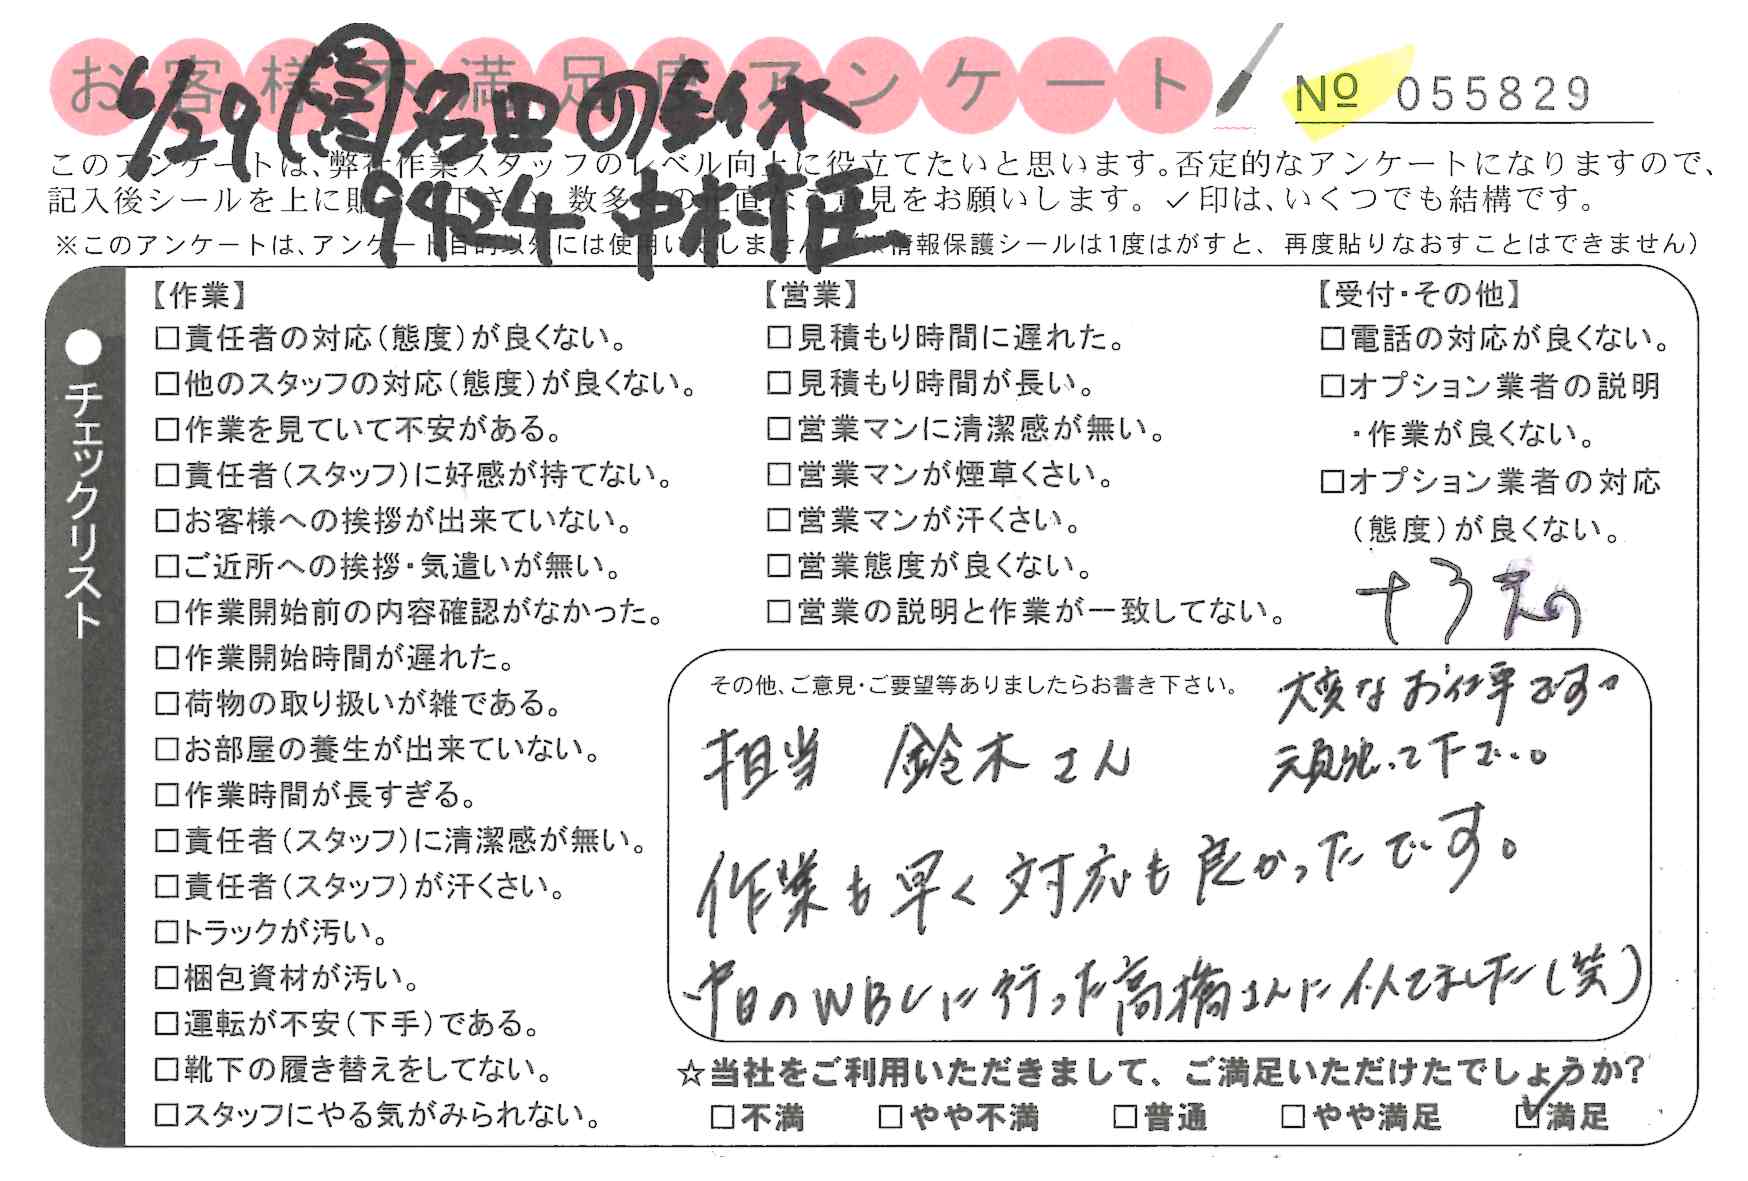 お客様不満足度アンケート
№ 055829
6/29 名田の鈴木
9424 中村匠
このアンケートは、弊社作業スタッフのレベル向上に役立てたいと思います。否定的なアンケートになりますので、
記入後シールを上に貼 下さい 数多 の正直なご意見をお願いします。✓印は、いくつでも結構です。
※このアンケートは、アンケート目的以外には使用いたしません (※情報保護シールは1度はがすと、再度貼りなおすことはできません)
●チェックリスト
【作業】
□責任者の対応(態度)が良くない。
□他のスタッフの対応(態度)が良くない。
□作業を見ていて不安がある。
□責任者(スタッフ)に好感が持てない。
□お客様への挨拶が出来ていない。
□ご近所への挨拶・気遣いが無い。
□作業開始前の内容確認がなかった。
□作業開始時間が遅れた。
□荷物の取り扱いが雑である。
□お部屋の養生が出来ていない。
□作業時間が長すぎる。
□責任者(スタッフ)に清潔感が無い。
□責任者(スタッフ)が汗くさい。
□トラックが汚い。
□梱包資材が汚い。
□運転が不安(下手)である。
□靴下の履き替えをしてない。
□スタッフにやる気がみられない。
【営業】
□見積もり時間に遅れた。
□見積もり時間が長い。
□営業マンに清潔感が無い。
□営業マンが煙草くさい。
□営業マンが汗くさい。
□営業態度が良くない。
□営業の説明と作業が一致してない。
【受付・その他】
□電話の対応が良くない。
□オプション業者の説明
・作業が良くない。
□オプション業者の対応
(態度)が良くない。
その他、ご意見・ご要望等ありましたらお書き下さい。
大変なお仕事ですが
頑張って下さい。
担当 鈴木さん
作業も早く対応も良かったです。
中日のWBCに行った高橋さんに似てました(笑)
☆当社をご利用いただきまして、ご満足いただけたでしょうか?
□不満 □やや不満 □普通 □やや満足 ☑満足